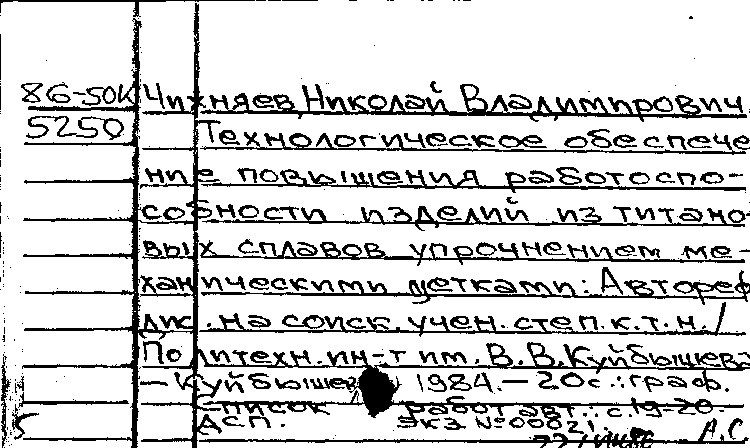 86-50К Чихняев, Николай Владимирович
5250 Технологическое обеспече
ние повышения работоспо-
собности изделий из титано-
вых сплавов упрочнением ме-
ханическими щетками: Автореф
дис. на соиск. учен. степ. к.т.н./
Политехн. ин-т им. В.В.Куйбышева
– Куйбышев, 1984. – 20с.: граф.
Список работ авт.: с.19-20.
ДСП. экз №00021
А.С